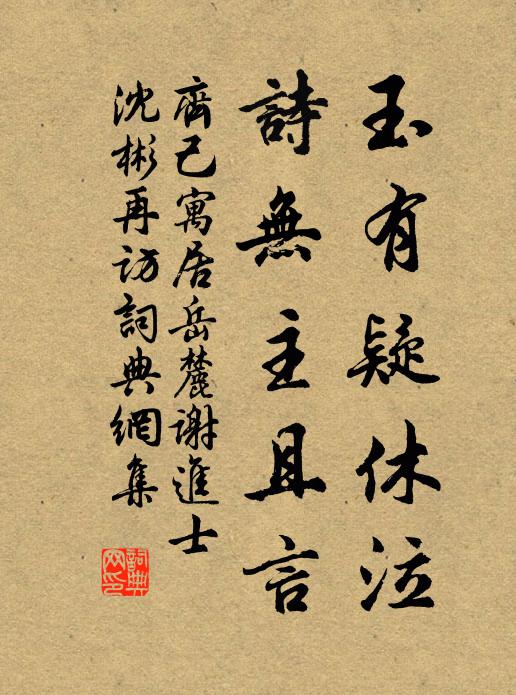 玉有疑休泣
詩無主且言
齊己寓居岳麓謝進士
沈彬再访詞典網集
詞典
网印